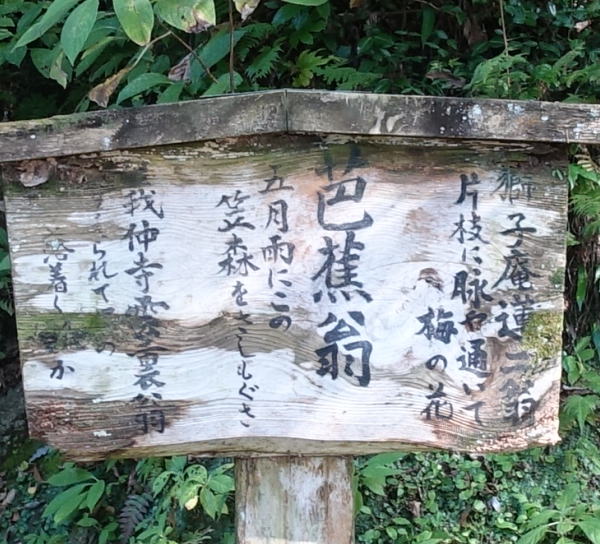 獅子庵蓮二翁
片枝に脉や通いて
梅の花
芭蕉翁
五月雨にこの
笠森をさしもぐさ
義仲寺雲裏翁
られて
落着く か